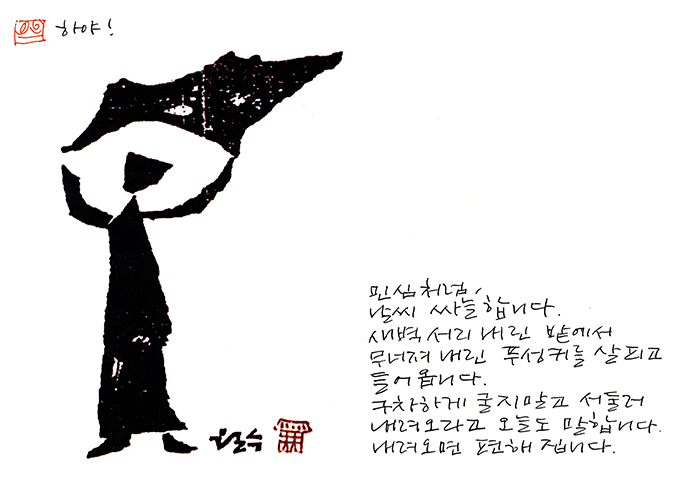 하야!
민심처럼,
날씨 싸늘합니다.
새벽 서리 내린 밭에서
무너져 내린 푸성귀를 살피고
들어옵니다.
구차하게 굴지말고 서둘러
내려오라고 오늘도 말합니다.
내려오면 편해 집니다.
철수